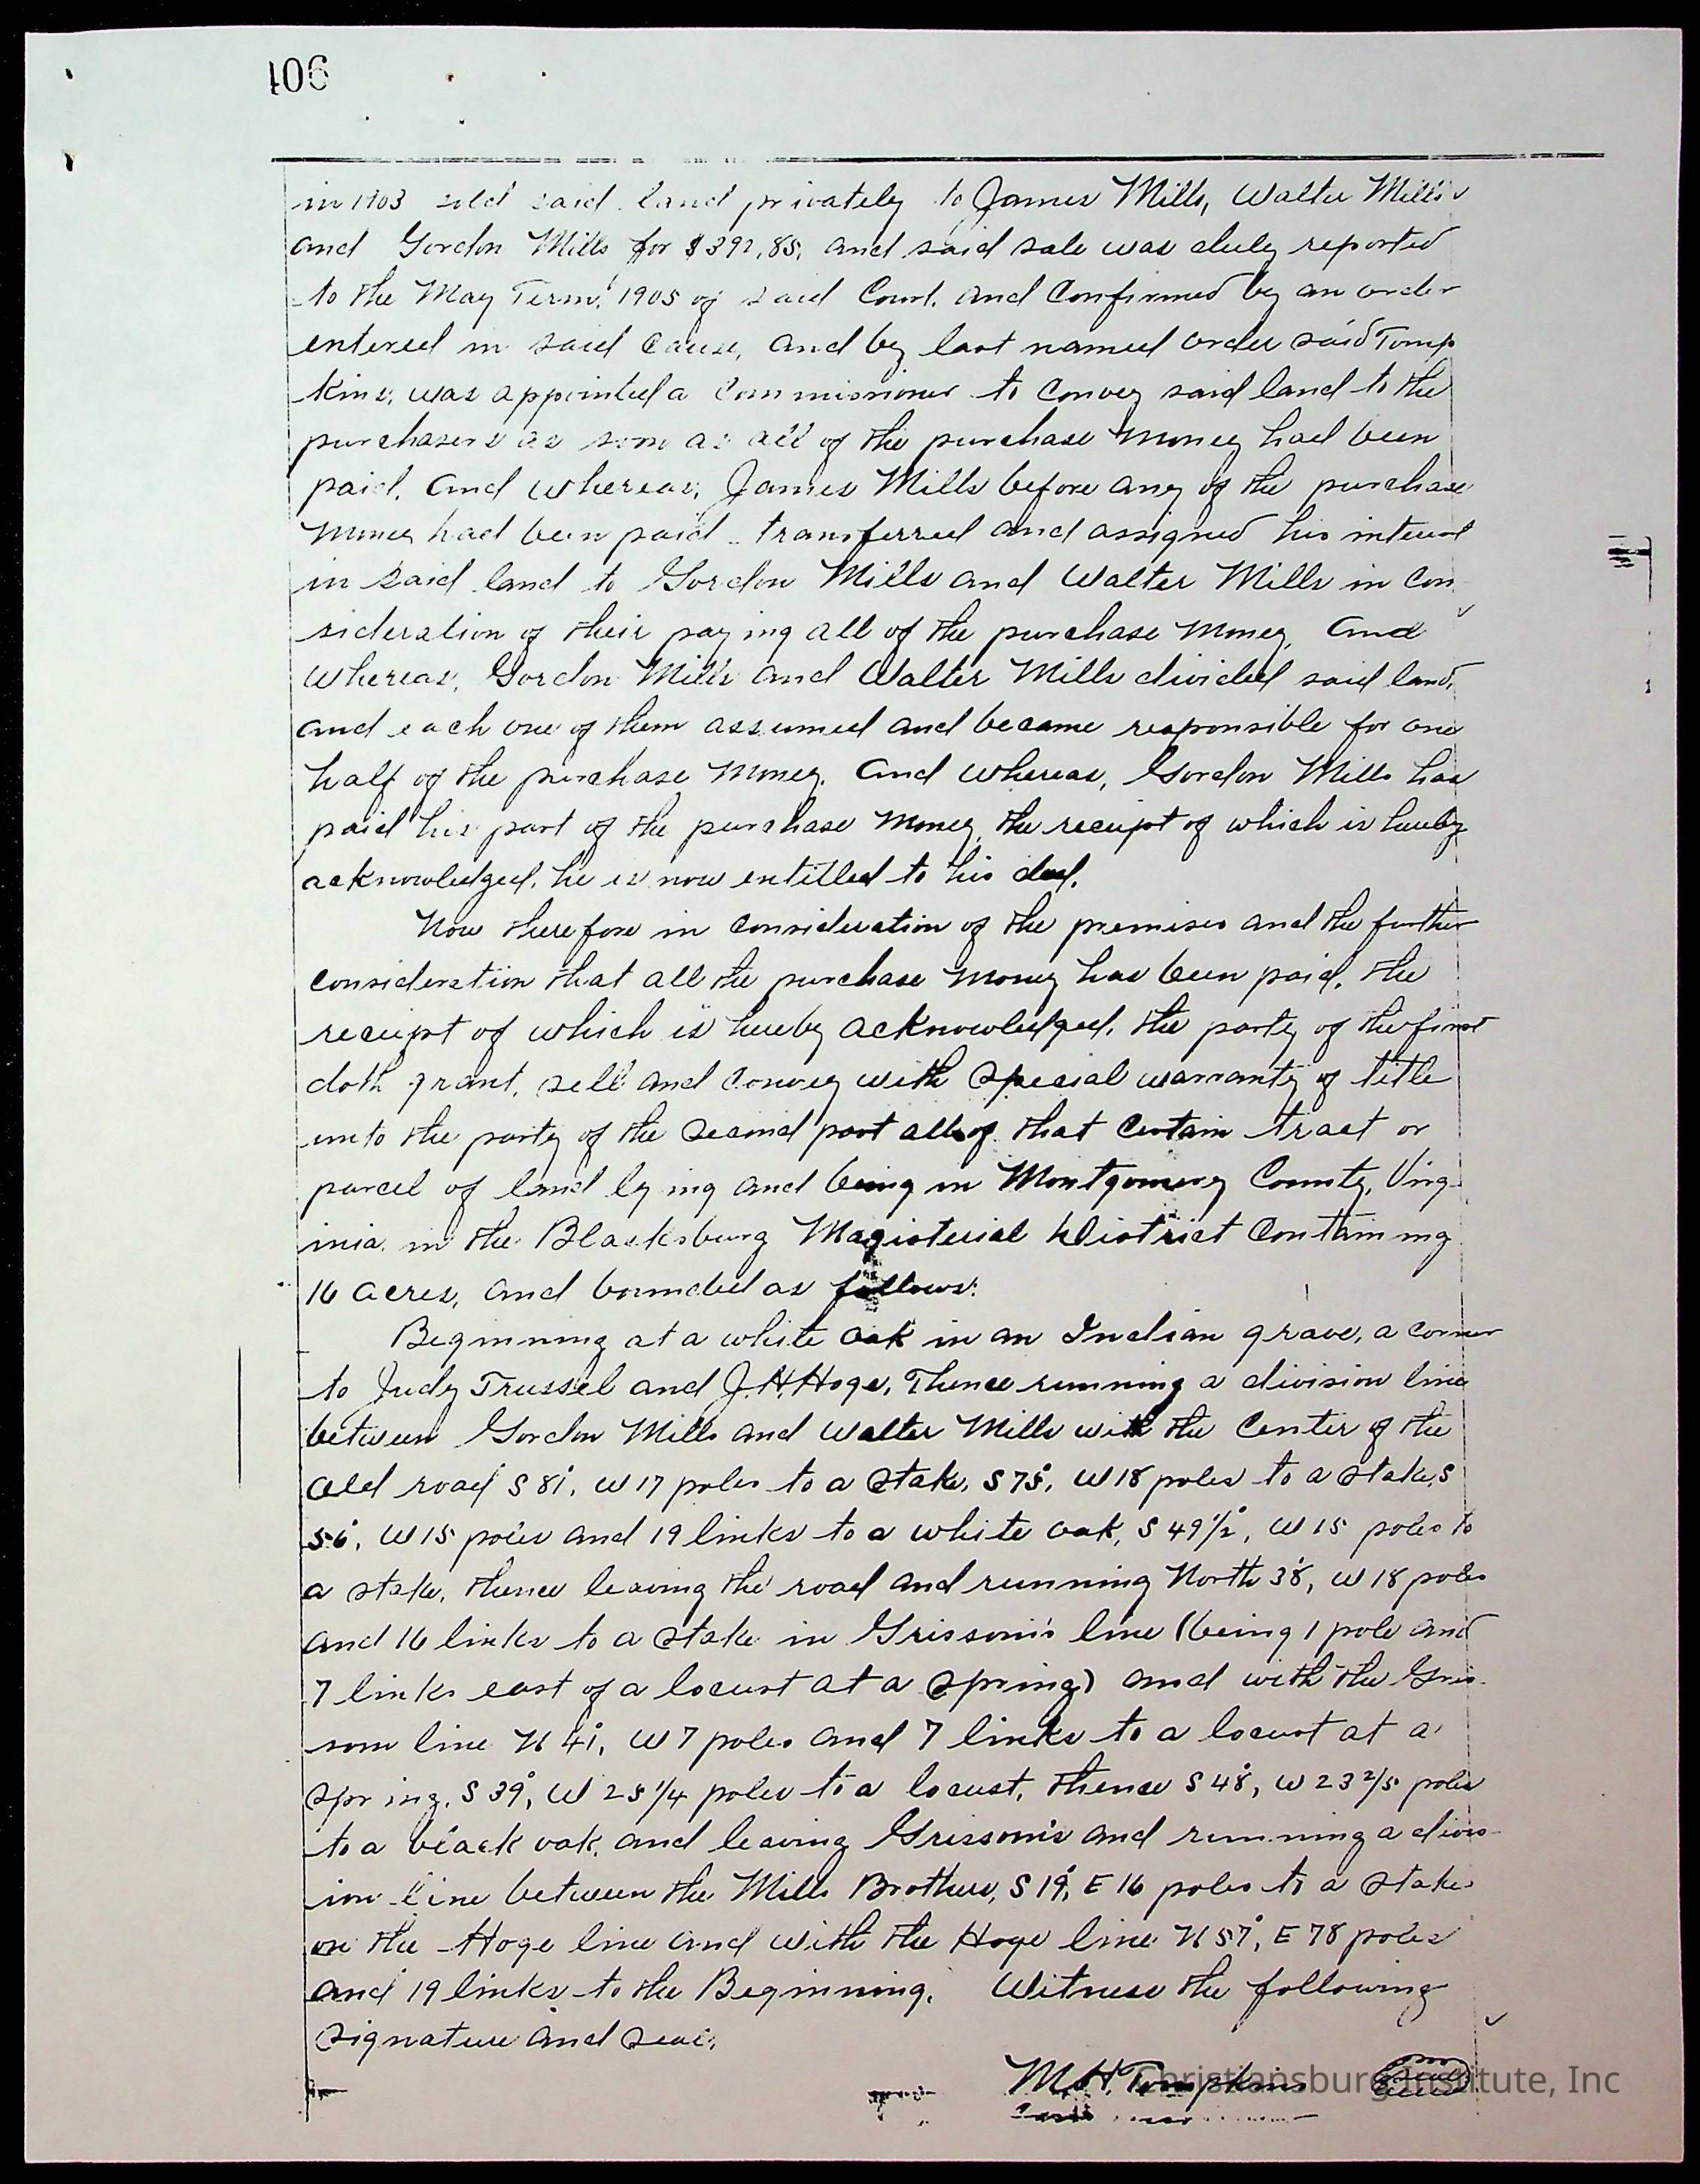 106
in 1903 sold said land privately to James Mills, Walter Mills
and Gordon Mills for $392,85, and said sale was duly reported
to the May Term, 1905 of said Court, and Confirmed by an order
entered in said Cause, and by last named order said Tomp
kins, was appointed a Commissioner to Convey said land to the
purchasers as soon as all of the purchase money had been
paid, and whereas, James Mills before any of the purchase
money had been paid transferred and assigned his interest
in said land to Gordon Mills and Walter Mills in Con
sideration of their paying all of the purchase money, and
whereas, Gordon Mills and Walter Mills divided said land,
and each one of them assumed and became responsible for one
half of the purchase money. And whereas, Gordon Mills has
paid his part of the purchase money, the receipt of which is hereby
acknowledged, he is now entitled to his deed.
Now therefore in consideration of the premises and the further
consideration that all the purchase money has been paid, the
receipt of which is hereby acknowledged, the party of the first
doth grant, sell and convey with Special warranty of title
unto the party of the second part all of that certain tract or
parcel of land lying and being in Montgomery County, Virg
inia, in the Blacksburg Magisterial District Containing
16 acres, and bounded as follows:
Beginning at a white oak in an Indian grave, a corner
to Judy Trussel and J.H.Hoge, Thence running a division line
between Gordon Mills and Walter Mills with the Center of the
old road S 81°, W 17 poles to a Stake, S 75°, W 18 poles to a stake, S
56°, W 15 poles and 19 links to a white oak, S 49½°, W 15 poles to
a stake, thence leaving the road and running North 38°, W 18 poles
and 16 links to a stake in Grissom's line (being 1 pole and
7 links east of a locust at a Spring) and with the Gris-
som line N 41°, W 7 poles and 7 links to a locust at a
Spring, S 39°, W 25 1/4 poles to a locust, thence S 48°, W 23 2/5 poles
to a black oak, and leaving Grissom's and running a divis-
ion line between the Mills Brothers, S 19°, E 16 poles to a stake
on the Hoge line and with the Hoge line N 57°, E 78 poles
and 19 links to the Beginning. Witness the following
Signature and Seal.
M.H.Tompkins
Christiansburg Institute, Inc